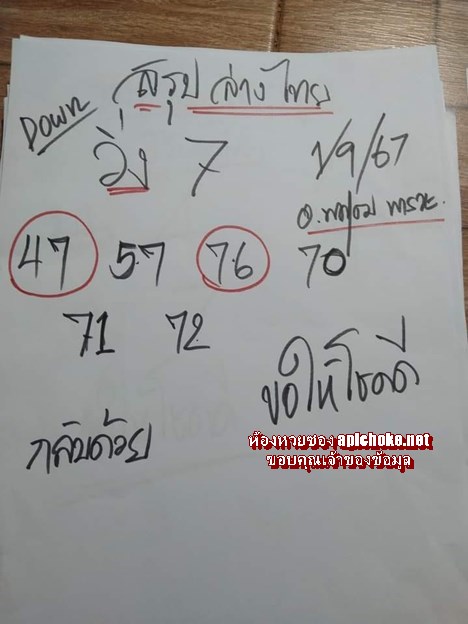 สรุป ล่างไทย
DOWN
วิ่ง 7
1/9/67
47 57 76 70
71 72
ขอให้โชคดี
กลับด้วย
ห้องหวยซอง aplchoke.net
ขอบคุณเจ้าของข้อมูล